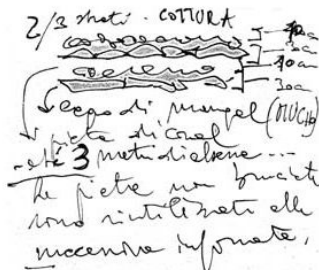 2/3 strati - COTTURA
30cm
10cm
30cm
ceppo di mangel (MUCHO)
pietre di coral
3 metri di
Le pietre non bruciate
sono riutilizzati alla
successiva infornata.